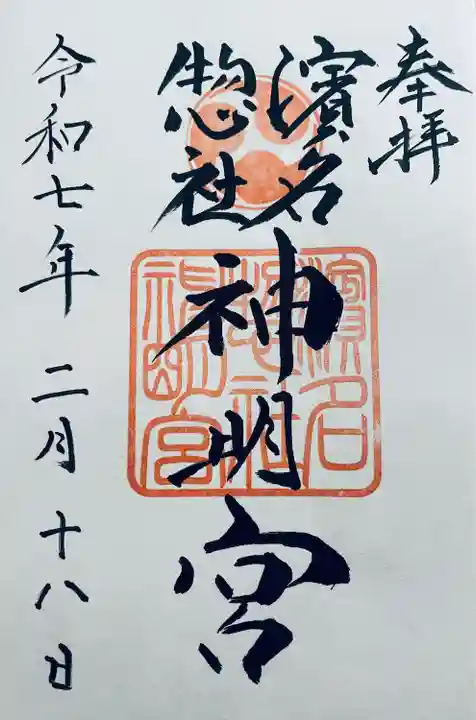 奉拝
濱名
惣社
神明宮
濱名
惣社
神明宮
令和七年二月十八日